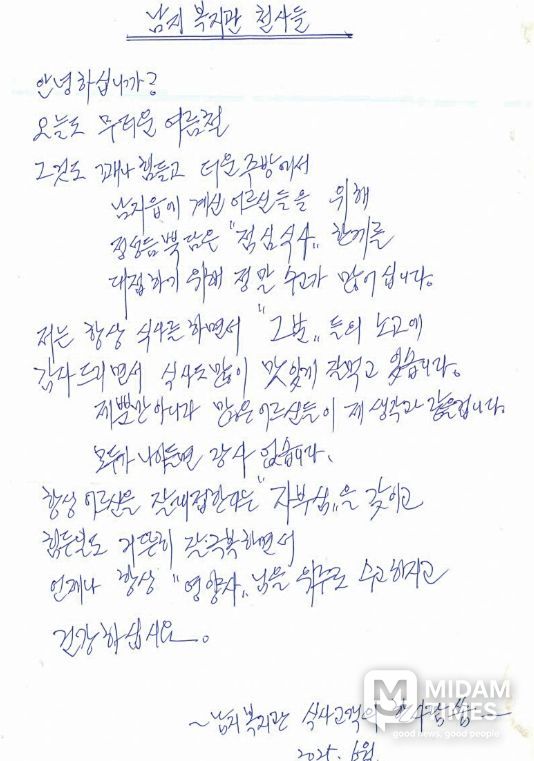 남지 복지관 천사들
안녕하십니까?
오늘도 무더운 여름철
그것도 꽤나 힘들고 더운 주방에서
남지읍에 계신 어르신들을 위해
정성듬뿍 담은 "점심식사" 한께를
대접하기 위해 정말 수고가 많이 십니다.
저는 항상 식사를 하면서 "그분" 들의 노고에
감사 드리면서 식사도 많이 맛있게 잘먹고 있습니다.
제뿐만아니라 많은 어르신들이 제 생각과 같을겁니다.
모두가 나이들면 장사 없습니다.
항상 어르신을 잘대접한다는 "자부심"을 갖이고
힘든일도 거뜬히 잘극복하면서
언제나 항상 "영양사" 님을 위주로 수고하시고
건강하십시요.
~남지복지관 식사고객이
2025. 6월
MIDAM TIMES
good news, good people